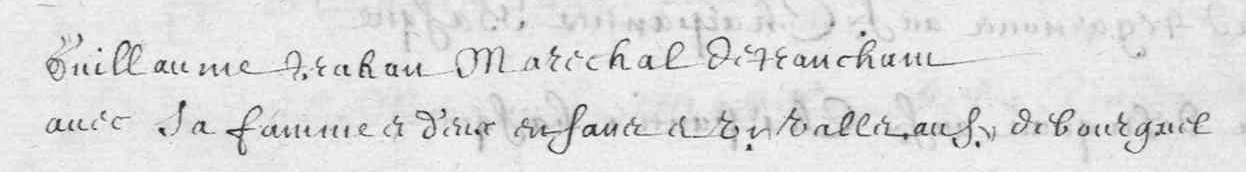 Guillaume trahan Marechal detranchant
avec sa famme e deux enfans e un vallet au s.r de bourgueil